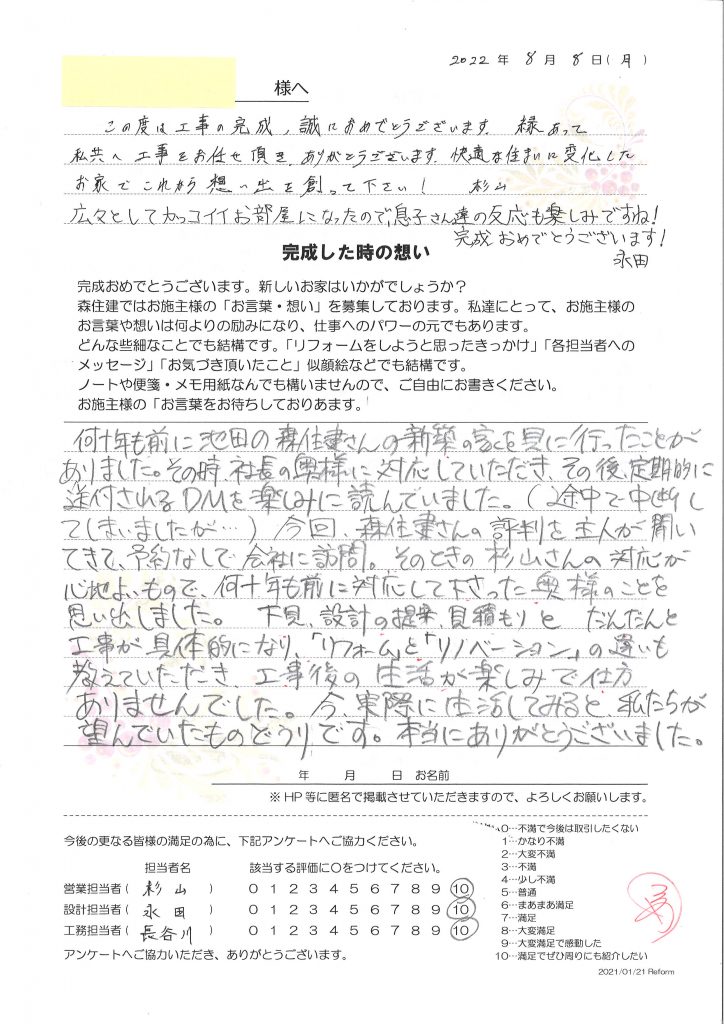 2022 年 8 月 8 日(月)
様へ
この度は工事の完成、誠におめでとうございます。縁あって
私共へ工事をお任せ頂き、ありがとうございます。快適な住まいに変化した
お家でこれから想い出を創って下さい！ 杉山
広々としてカッコイイお部屋になったので、息子さん達の反応も楽しみですね！
完成おめでとうございます！
永田
完成した時の想い
完成おめでとうございます。新しいお家はいかがでしょうか？
森住建ではお施主様の「お言葉・想い」を募集しております。私達にとって、お施主様の
お言葉や想いは何よりの励みになり、仕事へのパワーの元でもあります。
どんな些細なことでも結構です。「リフォームをしようと思ったきっかけ」「各担当者への
メッセージ」「お気づき頂いたこと」似顔絵などでも結構です。
ノートや便箋・メモ用紙なんでも構いませんので、ご自由にお書きください。
お施主様の「お言葉をお待ちしておりあます。
何十年も前に池田の森住建さんの新築の家を見に行ったことが
ありました。その時、社長の奥様に対応していただき、その後、定期的に
送付されるDMを楽しみに読んでいました。(途中で中断し
てしまいましたが…) 今回、森住建さんの評判を主人が聞い
てきて、予約なしで会社に訪問。そのときの杉山さんの対応が
心地よいもので、何十年も前に対応して下さった奥様のことを
思い出しました。 下見、設計の提案、見積もりと だんだんと
工事が具体的になり、「リフォーム」と「リノベーション」の違いも
教えていただき、工事後の生活が楽しみで仕方
ありませんでした。今、実際に生活してみると、私たちが
望んでいたものどうりです。本当にありがとうございました。
年 月 日 お名前
※HP等に匿名で掲載させていただきますので、よろしくお願いします。
今後の更なる皆様の満足の為に、下記アンケートへご協力ください。
担当者名 該当する評価に○をつけてください。
営業担当者( 杉山 ) 0 1 2 3 4 5 6 7 8 9 10
設計担当者( 永田 ) 0 1 2 3 4 5 6 7 8 9 10
工務担当者( 長谷川 ) 0 1 2 3 4 5 6 7 8 9 10
アンケートへご協力いただき、ありがとうございます。
0…不満で今後は取引したくない
1…かなり不満
2…大変不満
3…不満
4…少し不満
5…普通
6…まあまあ満足
7…満足
8…大変満足
9…大変満足で感動した
10…満足でぜひ周りにも紹介したい
2021/01/21 Reform